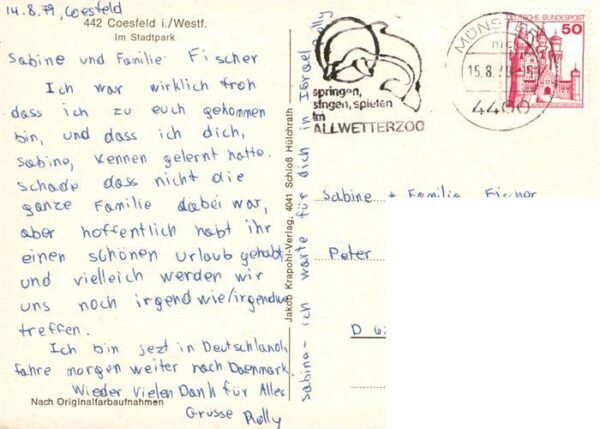 14.8.79, Coesfeld
442 Coesfeld i./Westf.
Im Stadtpark
Sabine und Familie Fischer
Ich war wirklich froh
dass ich zu euch gekommen
bin, und dass ich dich,
Sabine, kennen gelernt hatte.
Schade dass nicht die
ganze Familie dabei war,
aber hoffentlich habt ihr
einen schönen Urlaub gehabt
und vielleich werden wir
uns noch irgendwie/irgendwo
treffen.
Ich bin jezt in Deutschland,
fahre morgen weiter nach Daenmark.
Wieder vielen Dank für Alles
Grüsse Rolly
Nach Originalfarbaufnahmen
Jakob Krapohl-Verlag, 4041 Schloß Hülchrath
Sabine - ich warte für dich in Israel Rolly
springen,
singen, spielen
im
ALLWETTERZOO
MÜNSTER
15.8.79
4400
DEUTSCHE BUNDESPOST
50
Sabine + Familie Fischer
Peter
D 62